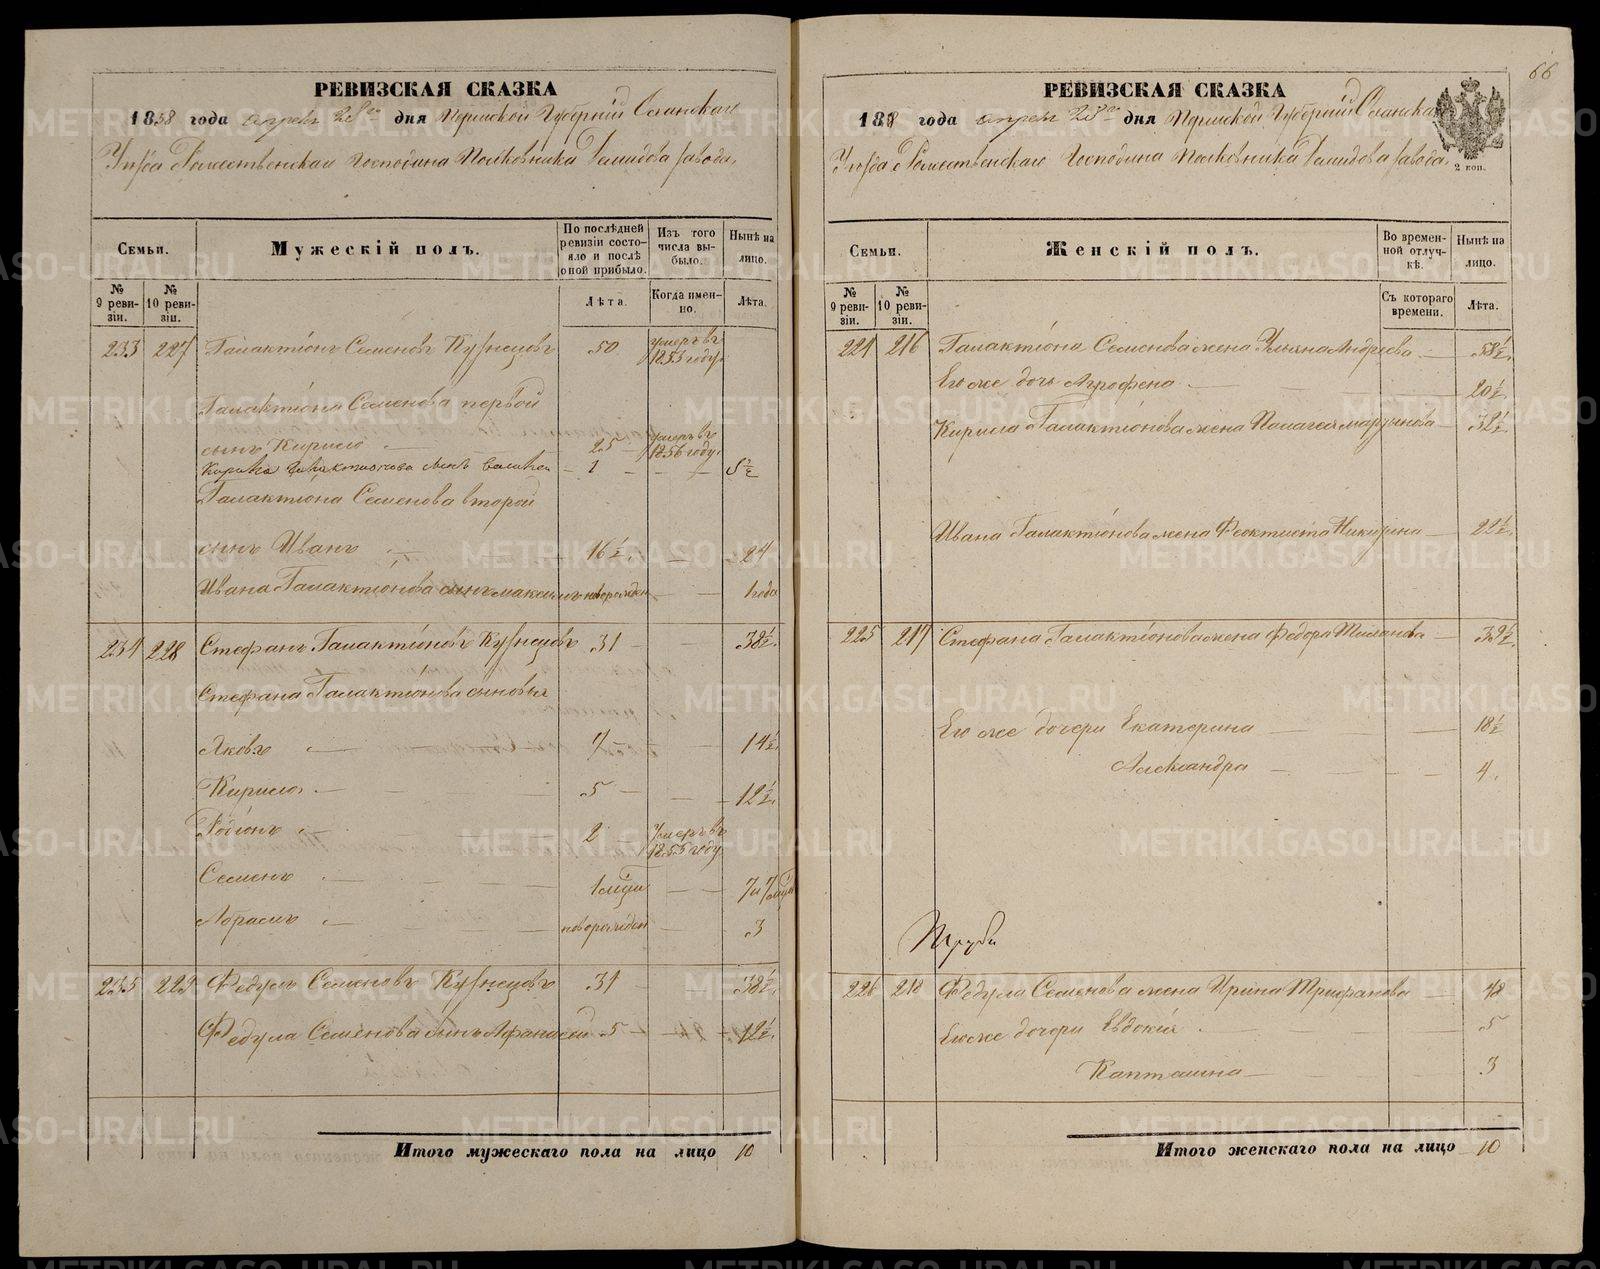 66
РЕВИЗСКАЯ СКАЗКА
1858 года апреля 28го дня Пермской Губернiи Осинскаго
Уѣзда Рождественскаго Господина Полковника Демидова завода,
Семьи.
Мужескiй полъ.
По послѣдней ревизiи состояло и послѣ оной прибыло.
Изъ того числа выбыло.
Нынѣ на лицо.
№ 9 ревизiи.
№ 10 ревизiи.
Лѣта.
Когда именно.
Лѣта.
233 227 Галактiонъ Семеновъ Кузнецовъ 50 умеръ въ 1853 году
Галактiона Семенова первой
сынъ Кирило 25 умеръ въ 1856 году
Кирила Галактионова сынъ 1 8½
Галактiона Семенова второй
сынъ Иванъ 16½ 24
Ивана Галактiонова сынъ Максимъ новорожден 1 года
234 228 Стефанъ Галактiоновъ Кузнецовъ 31 38½
Стефана Галактiонова сыновья
Яковъ 7 14½
Кирило 5 12½
Родiонъ 2 Умеръ въ 1855 году
Семенъ 1 мѣся 7 и 7 мѣся
Абрамъ новорожден 3
235 229 Федулъ Семеновъ Кузнецовъ 31 38½
Федула Семенова сынъ Афанасей 5 12½
Итого мужескаго пола на лицо 10
РЕВИЗСКАЯ СКАЗКА
1858 года апреля 28го дня Пермской Губернiи Осинскаго
Уѣзда Рождественскаго Господина Полковника Демидова завода,
2 коп.
Семьи.
Женскiй полъ.
Во временной отлучкѣ.
Нынѣ на лицо.
№ 9 ревизiи.
№ 10 ревизiи.
Съ котораго времени.
Лѣта.
224 216 Галактiона Семенова жена Ульяна Андреева 58½
Его же дочь Агрофена 20½
Кирила Галактiонова жена Палагея 32½
Ивана Галактiонова жена Феоктиста Никитина 22½
225 217 Стефана Галактiонова жена Федора 39½
Его же дочери Екатерина 18½
Александра 4
226 218 Федула Семенова жена Ирина Трифанова 48
Его же дочери Евдокiя 5
Капталина 3
Итого женскаго пола на лицо 10
METRIKI.GASO-URAL.RU